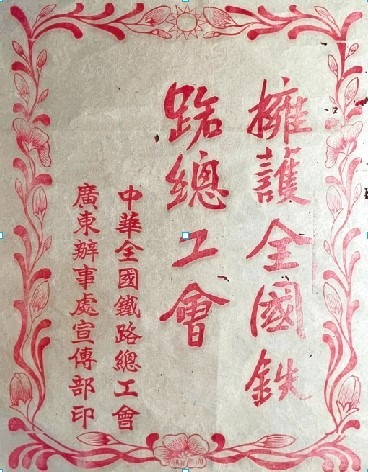 擁護全國鉄
路總工會
中華全國鐵路總工會
廣東辦事處宣傳部印